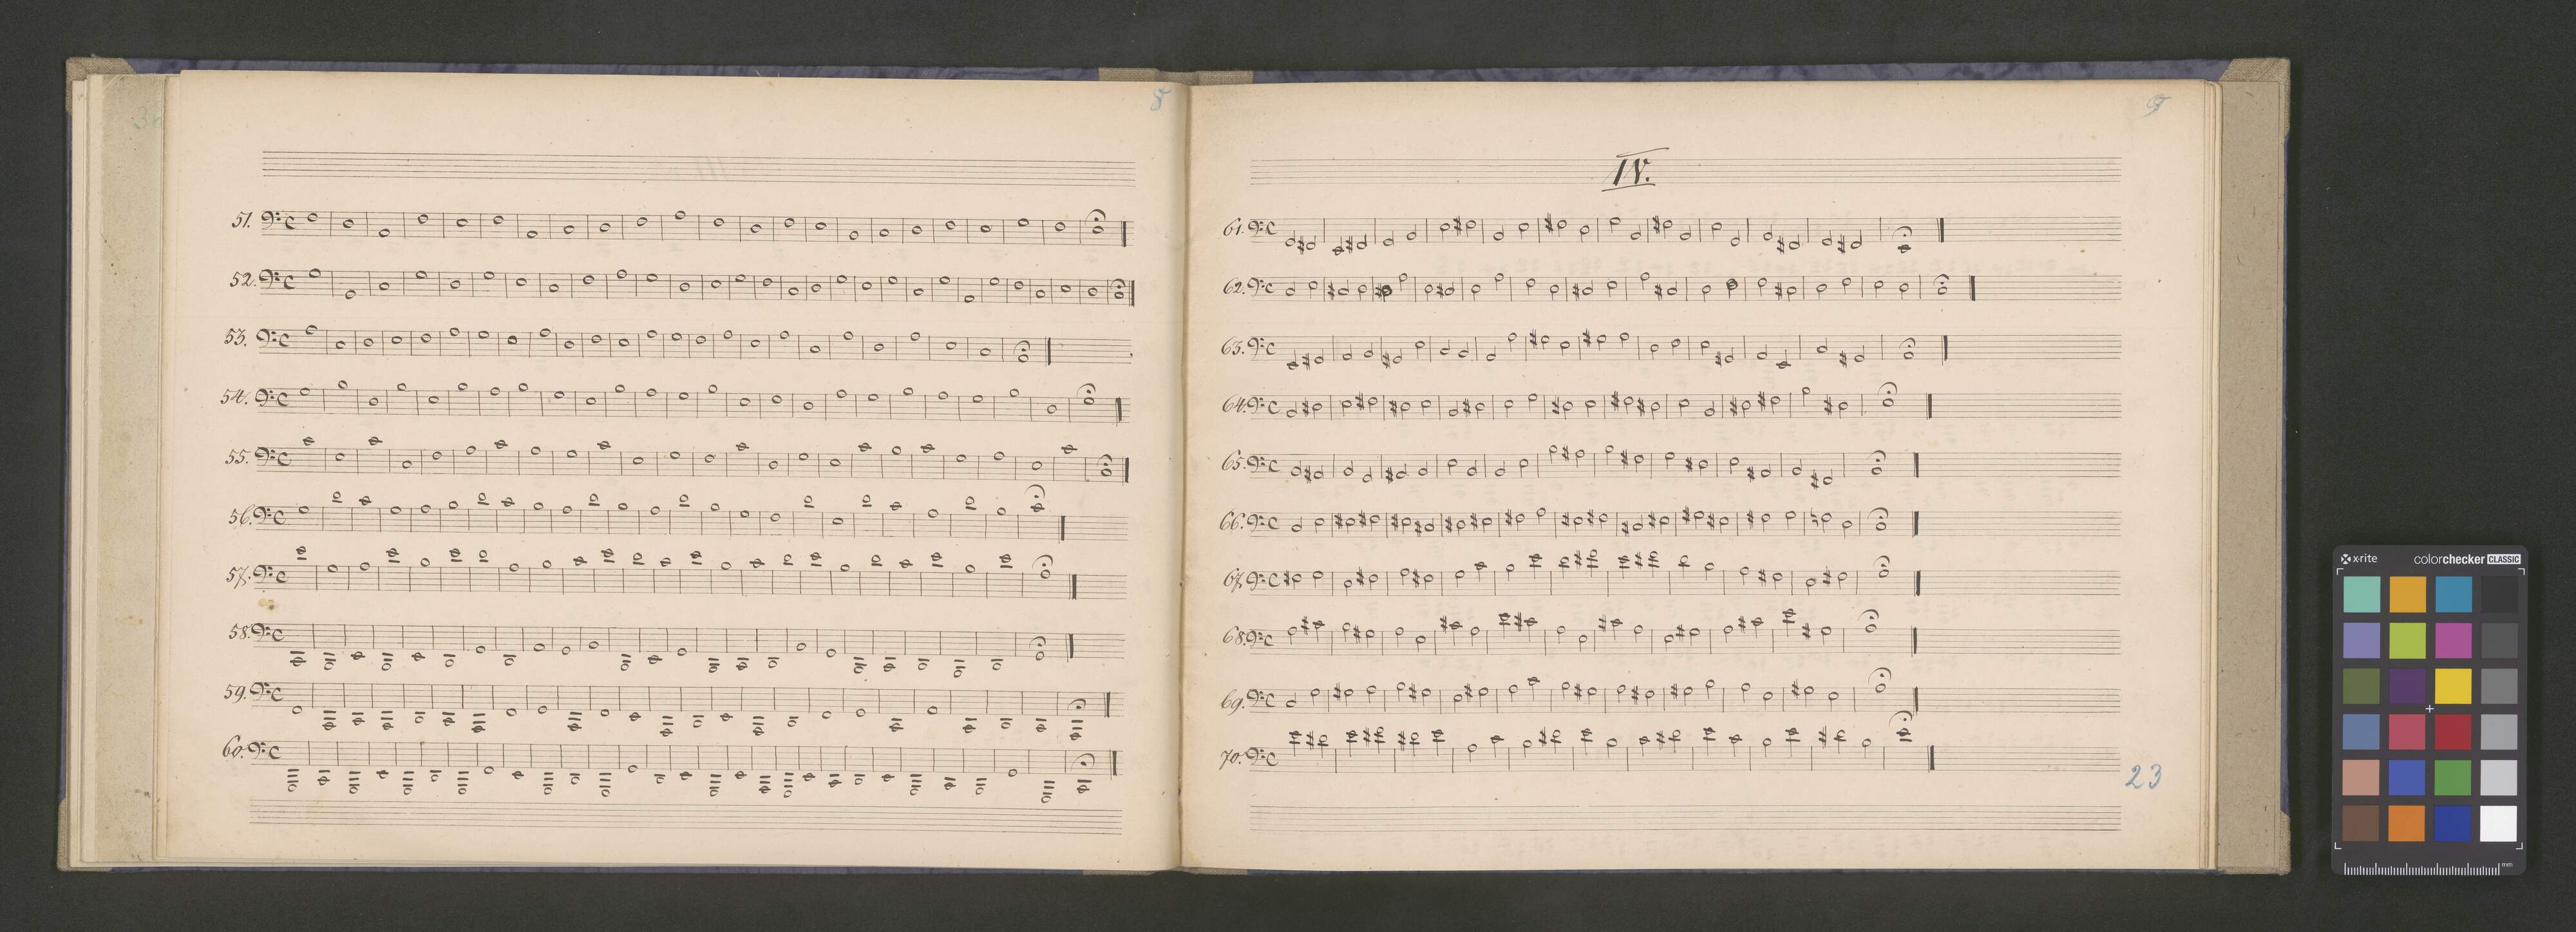 8
51.
52.
53.
54.
55.
56.
57.
58.
59.
60.
9
IV.
61.
62.
63.
64.
65.
66.
67.
68.
69.
70.
23
x-rite colorchecker CLASSIC
mm